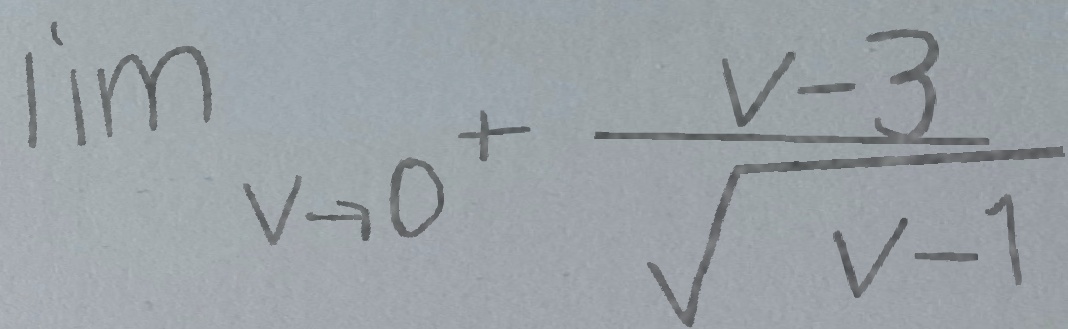 \lim_{v \to 0^+} \frac{v-3}{\sqrt{v-1}}